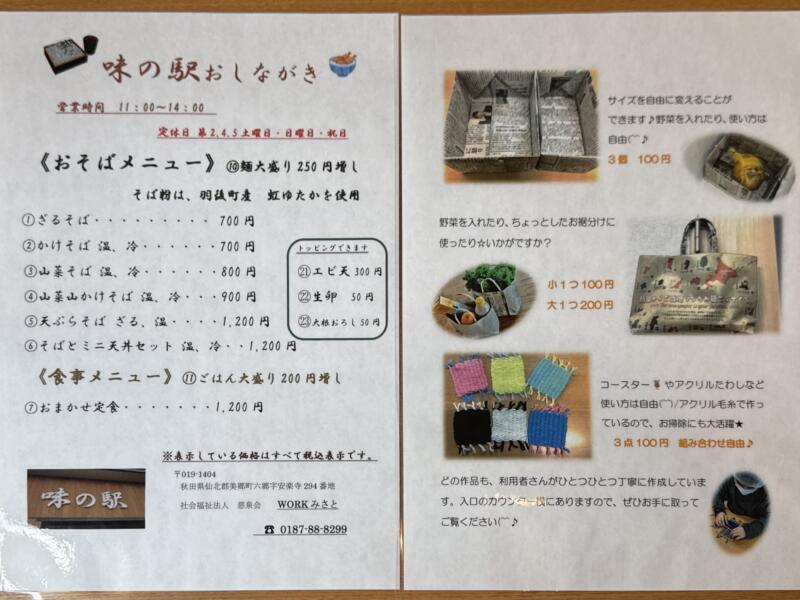 味の駅おしながき
営業時間 11：00～14：00
定休日 第2,4,5土曜日・日曜日・祝日
《おそばメニュー》 ⑩麺大盛り250円増し
そば粉は、羽後町産 虹ゆたかを使用
①ざるそば・・・・・・・・・ 700円
②かけそば 温、冷・・・・・・700円
③山菜そば 温、冷・・・・・ 800円
④山菜山かけそば 温、冷・・・ 900円
⑤天ぷらそば ざる、温・・・・1,200円
⑥そばとミニ天丼セット 温、冷・・1,200円
トッピングできます
㉑エビ天 300円
㉒生卵 50円
㉓大根おろし 50円
《食事メニュー》 ⑪ごはん大盛り200円増し
⑦おまかせ定食・・・・・・・1,200円
※表示している価格はすべて税込表示です。
〒019-1404
秋田県仙北郡美郷町六郷字安楽寺294番地
社会福祉法人 慈泉会 WORKみさと
☎ 0187-88-8299
味の駅
サイズを自由に変えることが
できます♪野菜を入れたり、使い方は
自由(⌒⌒)♪
3個 100円
野菜を入れたり、ちょっとしたお裾分けに
使ったり☆いかがですか？
小1つ100円
大1つ200円
コースターやアクリルたわしなど
使い方は自由(⌒⌒)/アクリル毛糸で作っ
ているので、お掃除にも大活躍★
3点100円 組み合わせ自由♪
どの作品も、利用者さんがひとつひとつ丁寧に作成していま
す。入口のカウンター横にありますので、ぜひお手に取って
ご覧ください(⌒⌒)♪